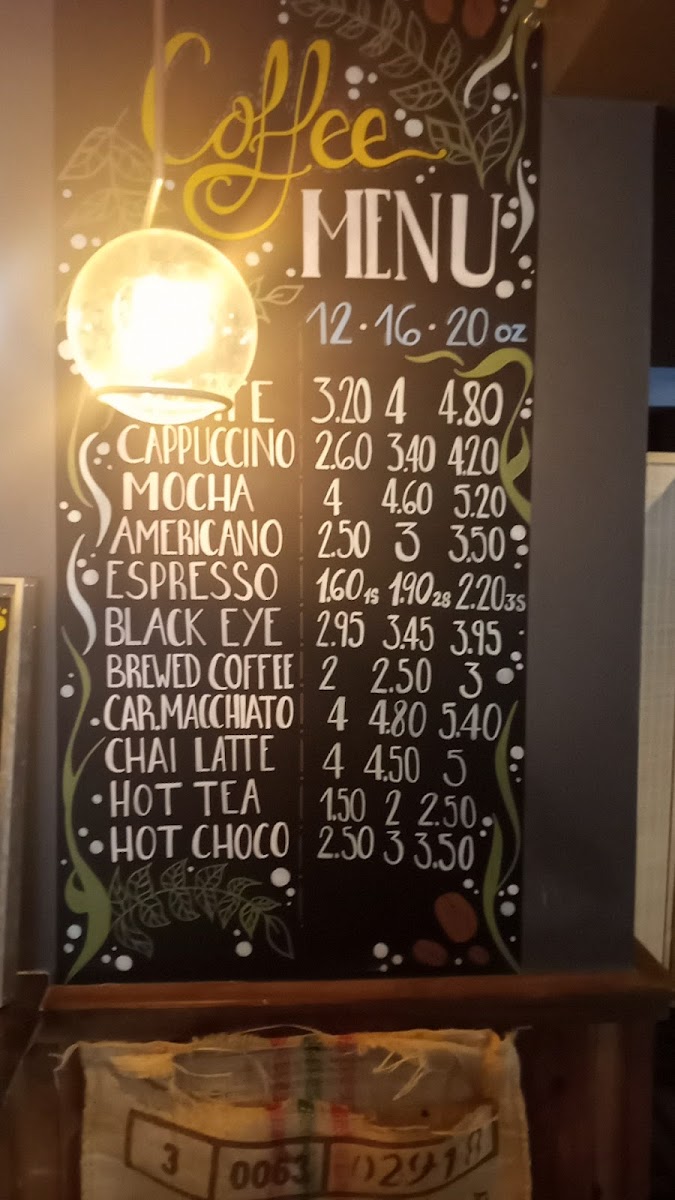 Coffee
MENU
12 · 16 · 20 oz
3.20 4 4.80
CAPPUCCINO 2.60 3.40 4.20
MOCHA 4 4.60 5.20
AMERICANO 2.50 3 3.50
ESPRESSO 1.60 1S 1.90 2S 2.20 3S
BLACK EYE 2.95 3.45 3.95
BREWED COFFEE 2 2.50 3
CAR.MACCHIATO 4 4.80 5.40
CHAI LATTE 4 4.50 5
HOT TEA 1.50 2 2.50
HOT CHOCO 2.50 3 3.50
3 0063